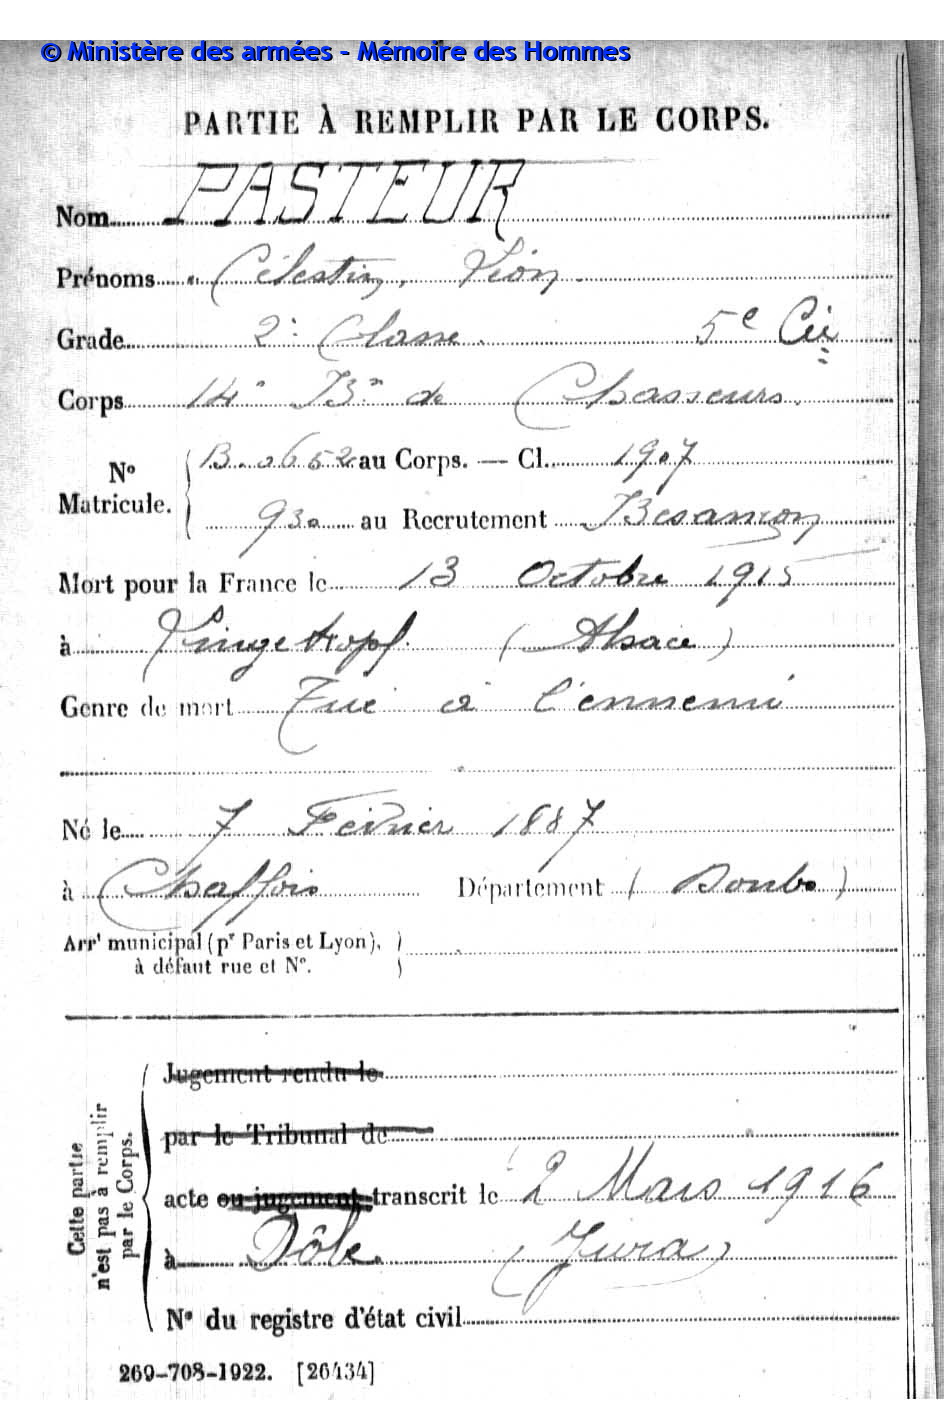 © Ministère des armées - Mémoire des Hommes
PARTIE À REMPLIR PAR LE CORPS.
Nom PASTEUR
Prénoms Célestin, Léon
Grade 2e Classe. 5e Cie
Corps 14e Bn de Chasseurs.
No Matricule. B. 0652 au Corps. — Cl. 1907
930 au Recrutement Besançon
Mort pour la France le 13 Octobre 1915
à Lingekopf. (Alsace)
Genre de mort Tué à l'ennemi
Né le 7 Février 1887
à Chaffois Département (Doubs)
Arrt municipal (pr Paris et Lyon),
à défaut rue et No.
Cette partie n'est pas à remplir par le Corps.
Jugement rendu le
par le Tribunal de
acte ou jugement transcrit le 2 Mars 1916
à Dôle (Jura)
No du registre d'état civil
269-708-1922. [26434]